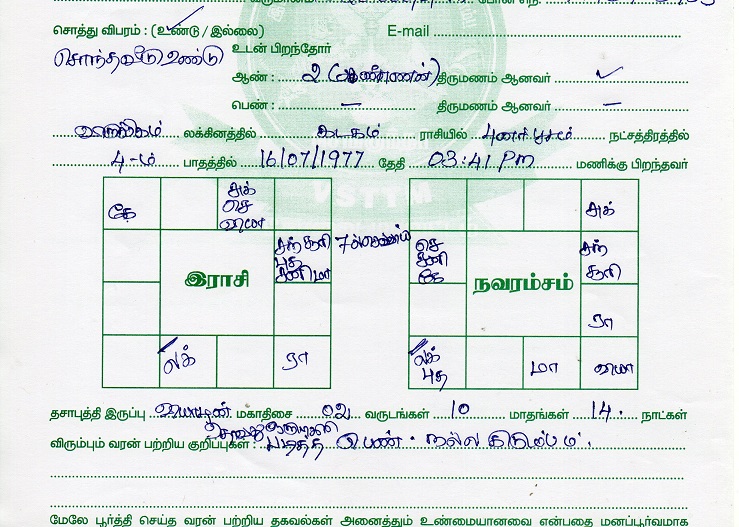 சொத்து விபரம் : (உண்டு / இல்லை) E-mail
சொந்தவீடு உண்டு உடன் பிறந்தோர்
ஆண் : 2 திருமணம் ஆனவர் ✓
பெண் : – திருமணம் ஆனவர் –
லக்கினத்தில் கடகம் ராசியில் புனர்பூசம் நட்சத்திரத்தில்
4-ம் பாதத்தில் 16/07/1977 தேதி 03:41 Pm மணிக்கு பிறந்தவர்
கே
சுக்
செ
சந் சூரி
புத
சனி மா
இராசி
லக்
ரா
சுக்
செ
சனி
கே
சந்
சூரி
நவராம்சம்
ரா
லக்
புத
மா
தசாபுத்தி இருப்பு மகாதிசை 02 வருடங்கள் 10 மாதங்கள் 14 நாட்கள்
விரும்பும் வரன் பற்றிய குறிப்புகள் : படித்த பெண். நல்ல குடும்பம்.
மேலே பூர்த்தி செய்த வரன் பற்றிய தகவல்கள் அனைத்தும் உண்மையானவை என்பதை மனப்பூர்வமாக